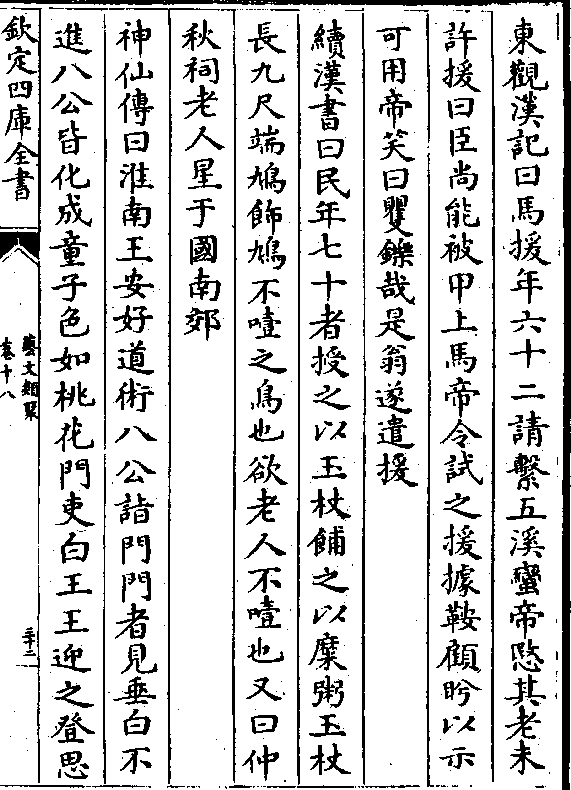 東觀漢記曰馬援年六十二請擊五溪蠻帝愍其老未
許援曰臣尚能被甲上馬帝令試之援據鞍顧眄以示
可用帝笑曰矍鑠哉是翁遂遣援
續漢書曰民年七十者授之以玉杖餔之以糜粥玉杖
長九尺端鳩飾鳩不噎之鳥也欲老人不噎也又曰仲
秋祠老人星于國南郊
神仙傳曰淮南王安好道術八公詣門門者見垂白不
進八公皆化成童子色如桃花門吏白王王迎之登思
欽定四庫全書
藝文類聚
卷十八
二十二